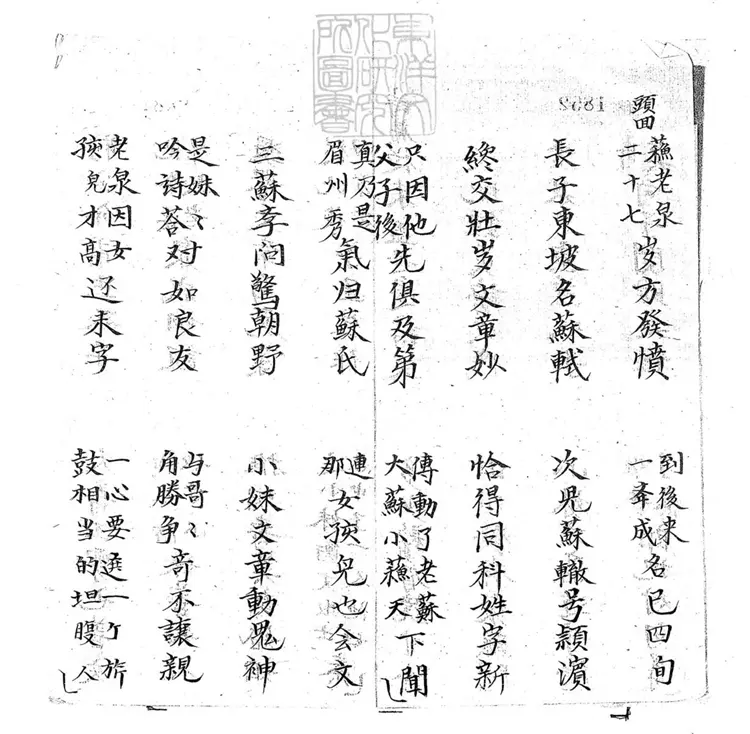 頭回
蘇老泉二十七岁方發憤
到後来一举成名已四旬
長子東坡名蘇軾
次児蘇轍号潁濱
終交壯岁文章妙
恰得同科姓字新
只因他父子後先俱及第
傳動了老蘇大蘇小蘇天下聞
真乃是眉州秀氣归蘇氏
連那女孩児也会文
三蘇斈问驚朝野
小妹文章動鬼神
是妹〻吟詩荅对如良友
与哥〻角勝争奇不讓親
老泉因女孩児才高还未字
一心要選一个旂鼓相当的坦腹人
東洋文化研究所圖書